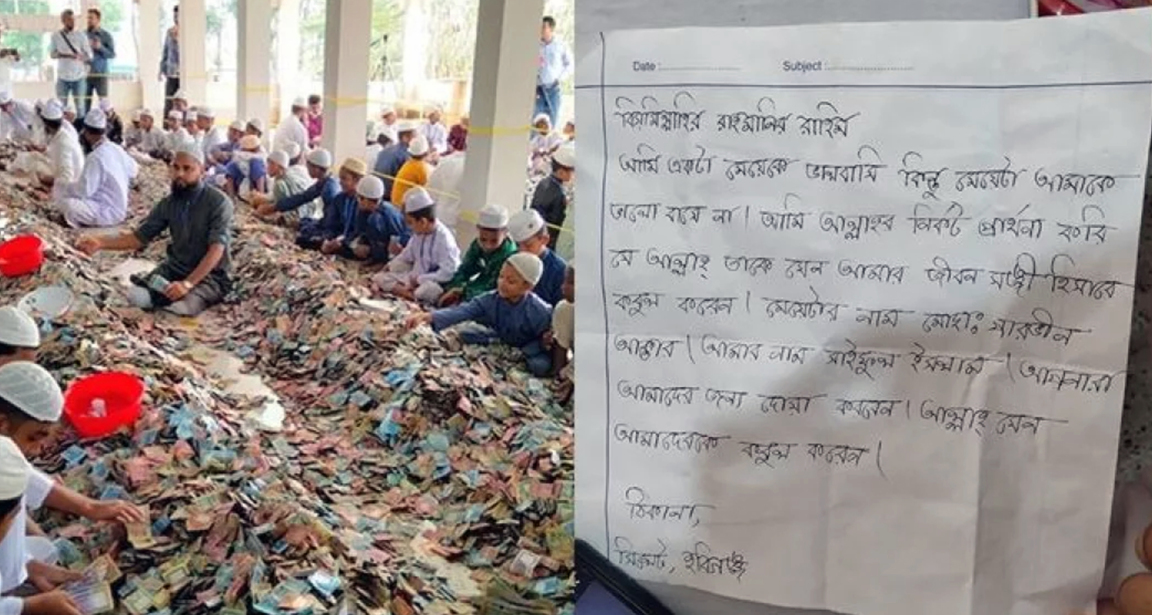 Date : Subject :
বিসমিল্লাহির রাহমানির রাহিম
আমি একটা মেয়েকে ভালবাসি কিন্তু মেয়েটা আমাকে
ভালো বাসে না। আমি আল্লাহর নিকট প্রার্থনা করি
যে আল্লাহ্ তাকে যেন আমার জীবন সঙ্গী হিসাবে
কবুল করেন। মেয়েটার নাম মোছাঃ পারভীন
আক্তার। আমার নাম সাইফুল ইসলাম। আপনারা
আমাদের জন্য দোয়া করবেন। আল্লাহ্ যেন
আমাদেরকে কবুল করেন।
ঠিকানা,
সিলেট, হবিগঞ্জ